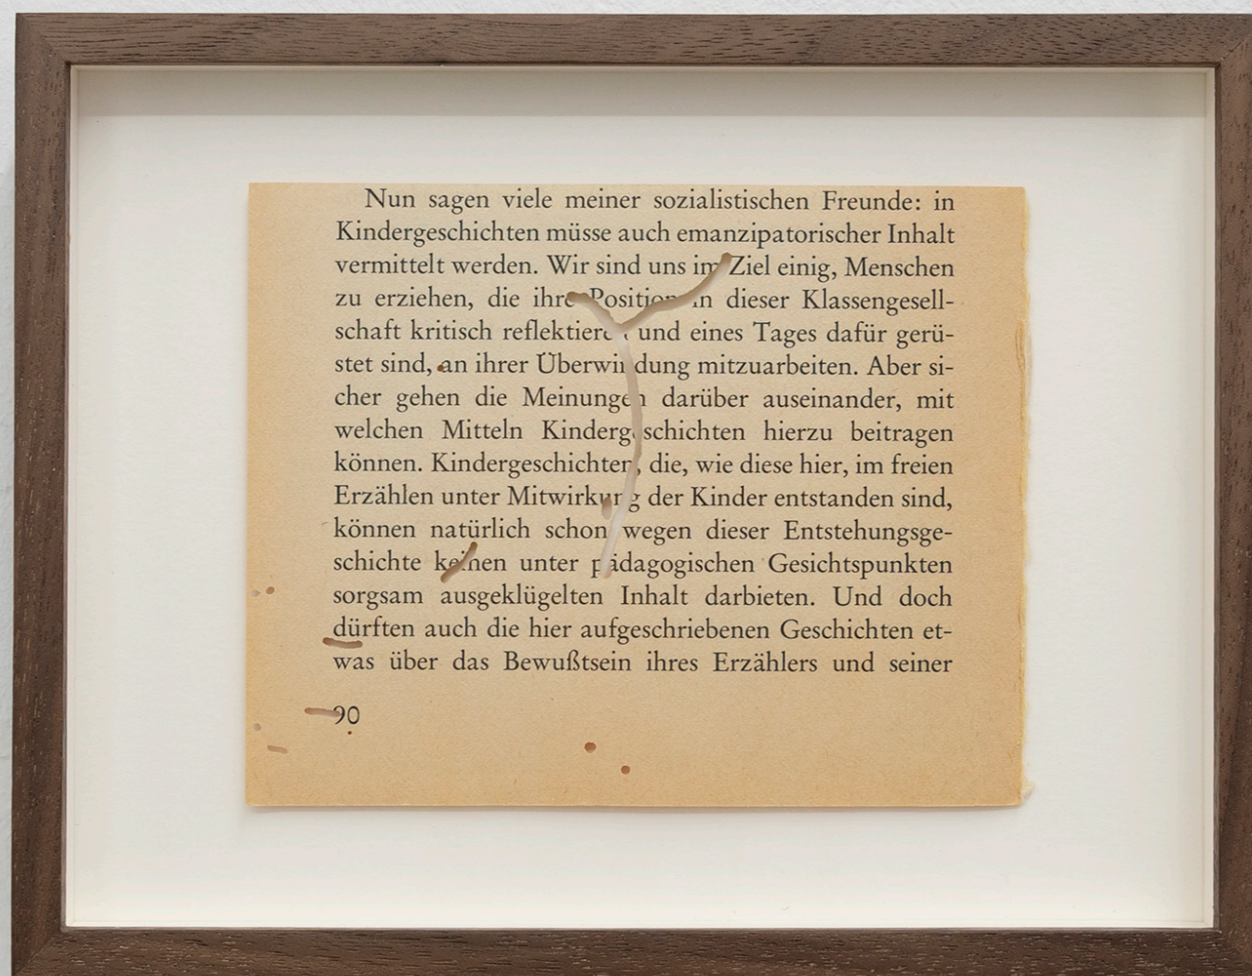 Nun sagen viele meiner sozialistischen Freunde: in
Kindergeschichten müsse auch emanzipatorischer Inhalt
vermittelt werden. Wir sind uns im Ziel einig, Menschen
zu erziehen, die ihre Position in dieser Klassengesell-
schaft kritisch reflektieren und eines Tages dafür gerü-
stet sind, an ihrer Überwindung mitzuarbeiten. Aber si-
cher gehen die Meinungen darüber auseinander, mit
welchen Mitteln Kindergeschichten hierzu beitragen
können. Kindergeschichten, die, wie diese hier, im freien
Erzählen unter Mitwirkung der Kinder entstanden sind,
können natürlich schon wegen dieser Entstehungsge-
schichte keinen unter pädagogischen Gesichtspunkten
sorgsam ausgeklügelten Inhalt darbieten. Und doch
dürften auch die hier aufgeschriebenen Geschichten et-
was über das Bewußtsein ihres Erzählers und seiner
90